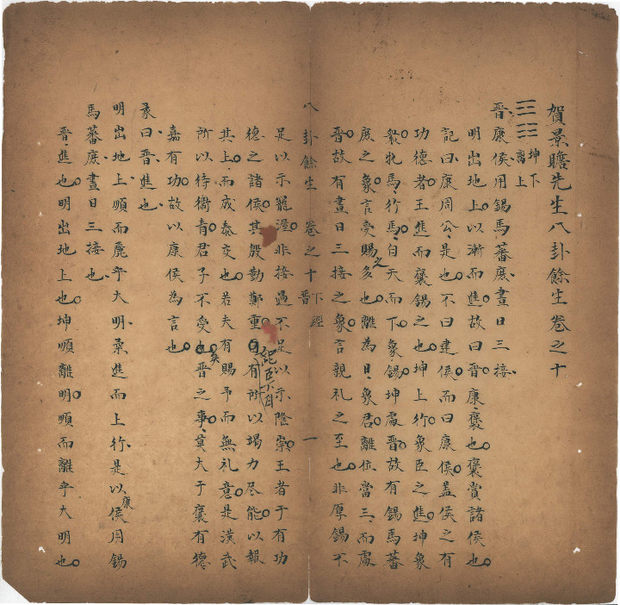 賀景瞻先生八卦餘生卷之十
坤下
離上
晋康侯用錫馬蕃庶晝日三接
明出地上以漸而進故曰晋康褒也褒賞諸侯也
記曰康周公是也不曰建侯而曰康侯盖侯之有
功德者王進而褒錫之也坤上行象臣之進坤象
衆牝馬行馬自天而下象錫坤處晋故有錫馬蕃
庶之象言受賜之多也離為日象君離位當三而處
晋故有晝日三接之象言親礼之至也非厚錫不
八卦餘生 卷之十 下經 晋 一
足以示寵渥非接遇不足以示隆崇王者于有功
德之諸侯其殷勤鄭重
有所以竭力尽能以報
其上而成泰交也若夫有賜予而無礼意是漢武
所以待衛青君子不受也矣晋之事莫大于褒有德
嘉有功故以康侯為言也
彖曰晋進也
明出地上順而麗乎大明柔進而上行是以康侯用錫
馬蕃庶晝日三接也
晋進也明出地上也坤順離明順而離乎大明也